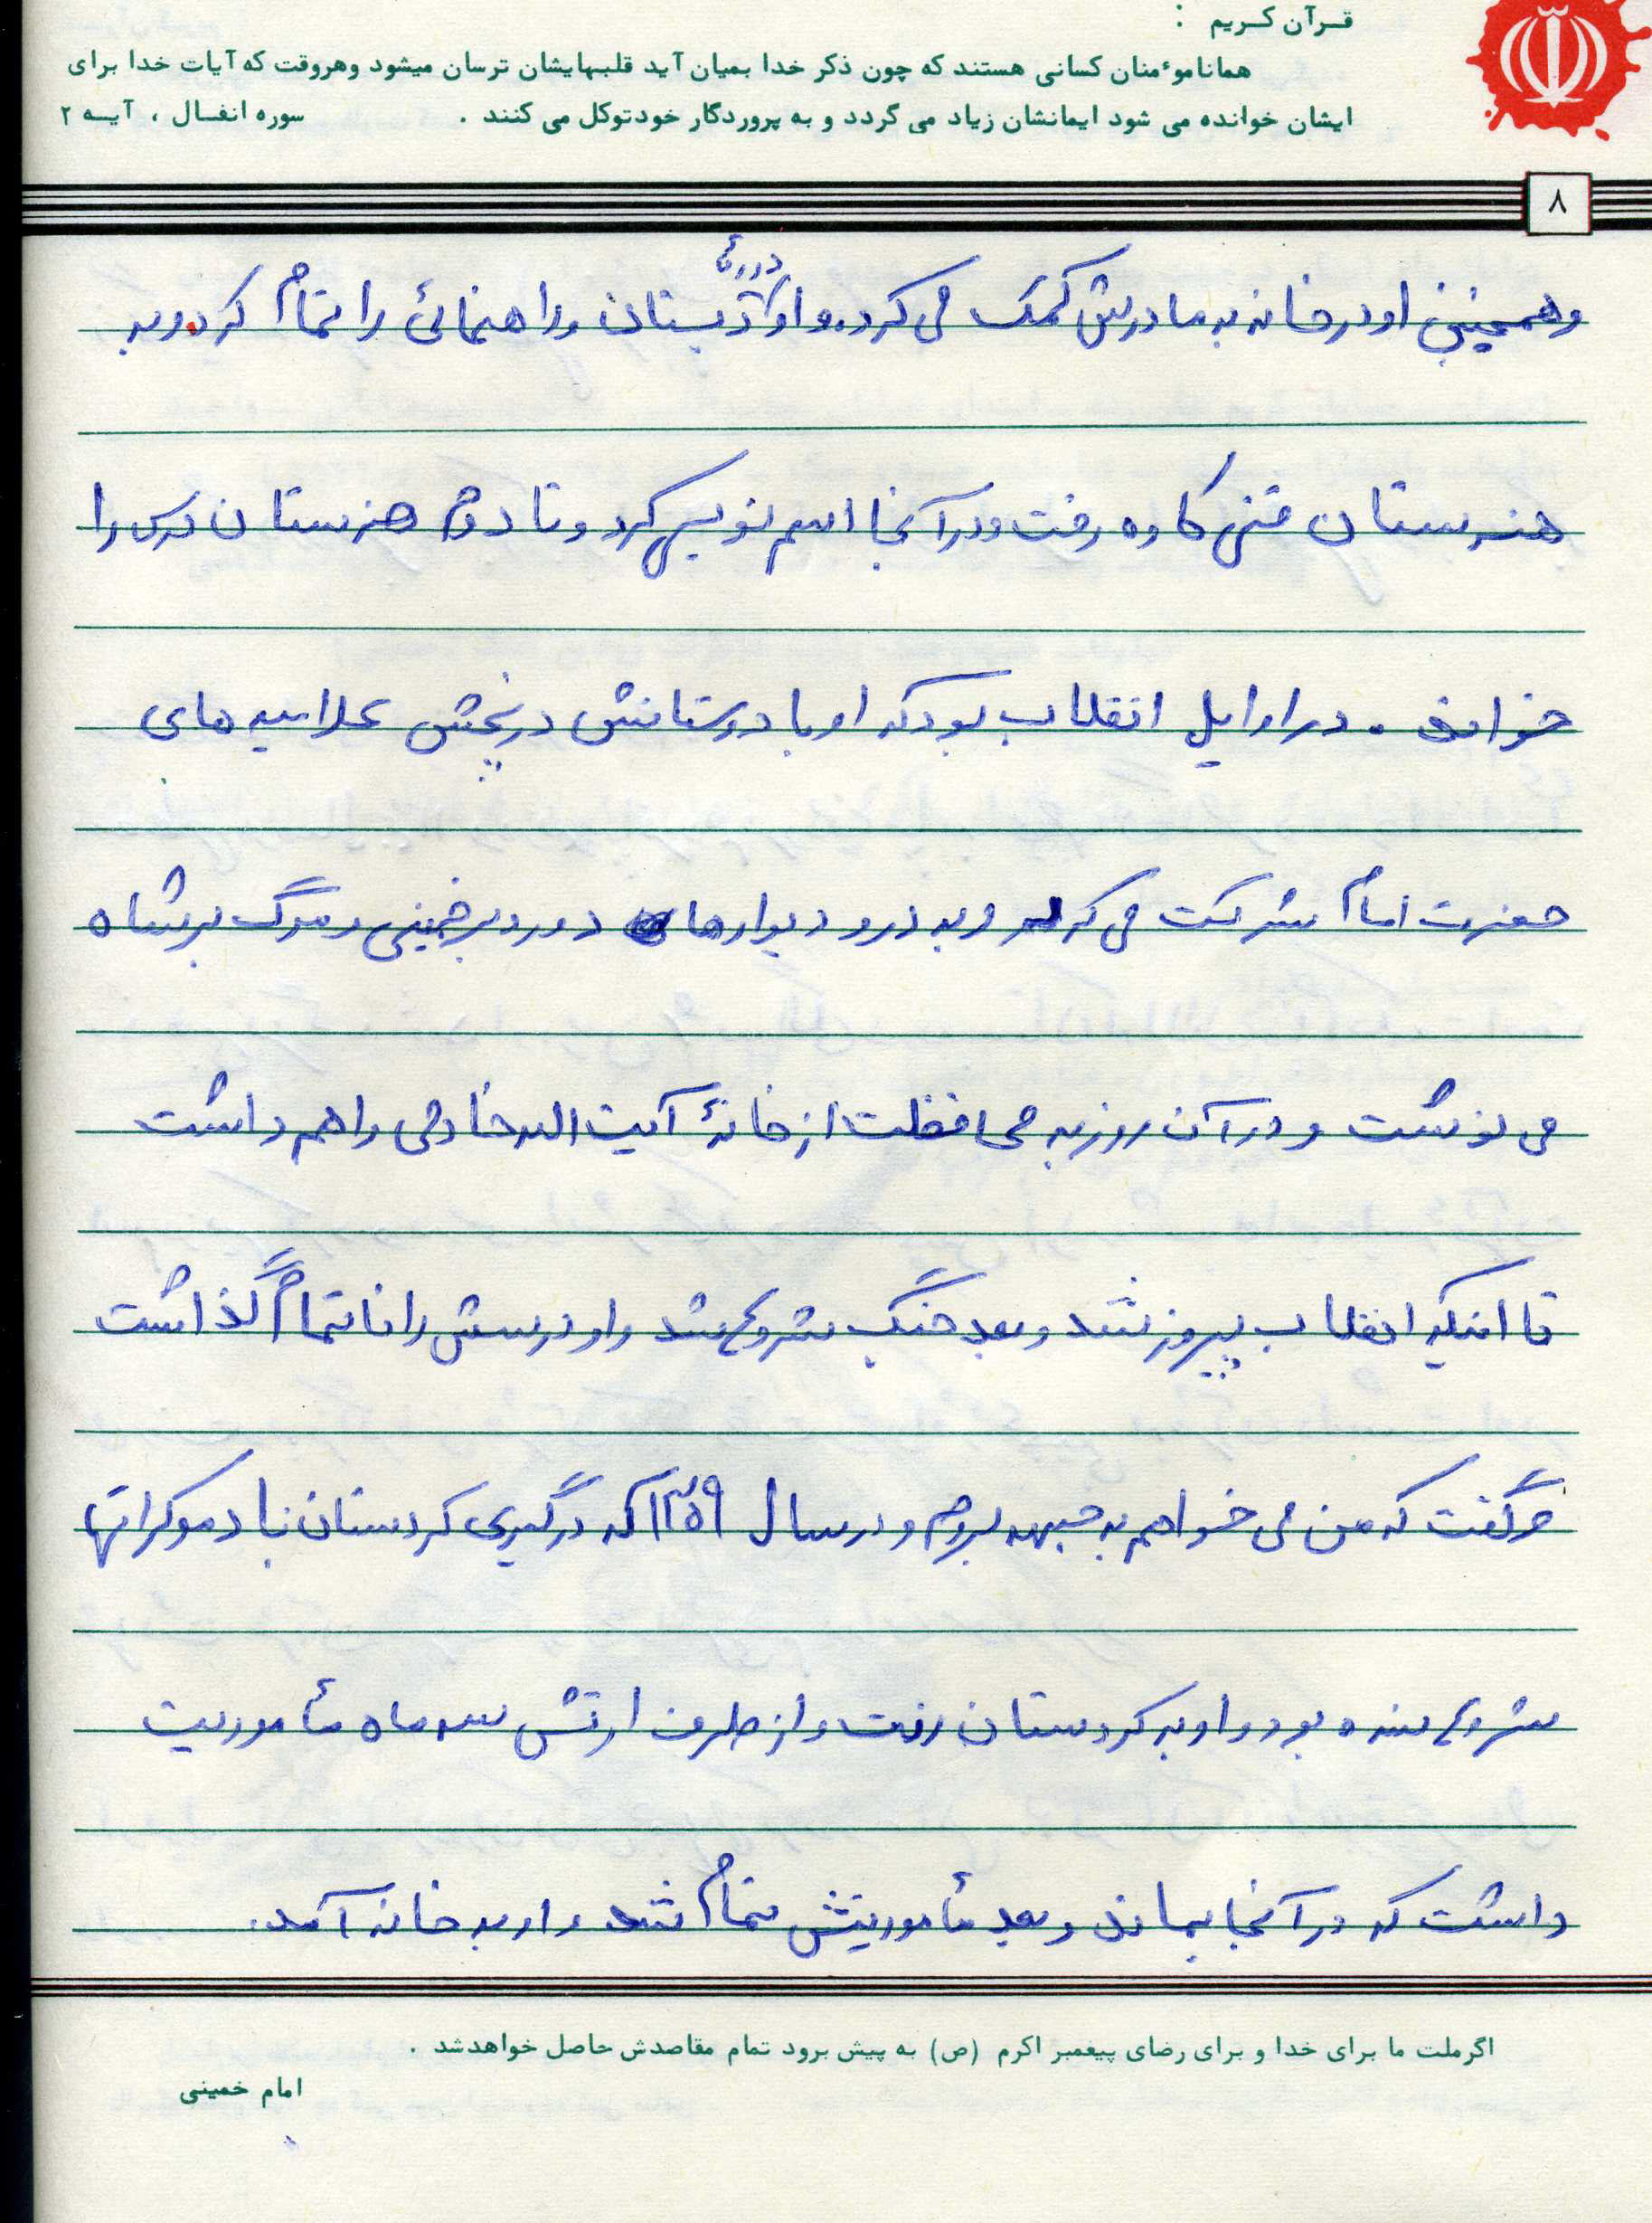 قـرآن كـريم :
همانامو^منان كسانى هستند كه چون ذكر خدا بميان آيد قلبهايشان ترسان ميشود وهروقت كه آيات خدا براى
ايشان خوانده مى شود ايمانشان زياد مى گردد و به پروردگار خودتوكل مى كنند . سوره انفـال ، آيـه ۲
۸
وهمچنین او در خانه به مادرش کمک می کرد. و او دورهٔ دبستان و راهنمائی را تمام کرد. و به
هنرستان فنی کاوه رفت و در آنجا اسم نویسی کرد و تا دوم هنرستان درس را
خواند . در اوایل انقلاب بود که او با دوستانش در پخش علامیه های
حضرت امام شرکت می کرد و به در و دیوارها درود بر خمینی و مرگ بر شاه
می نوشت و در آن روز به محافظت از خانهٔ آیت الله خادمی را هم داشت
تا اینکه انقلاب پیروز شد و بعد جنگ شروع شد و او درسش را ناتمام گذاشت
گفت که من می خواهم به جبهه بروم و در سال ۱۳۵۹ که درگیری کردستان با دموکراتها
شروع شده بود و او به کردستان رفت و از طرف ارتش سه ماه مأموریت
داشت که در آنجا بماند و بعد مأموریتش تمام شد و او به خانه آمد.
اگرملت ما براى خدا و براى رضاى پيغمبر اكرم (ص) به پيش برود تمام مقاصدش حاصل خواهدشد .
امام خمينى